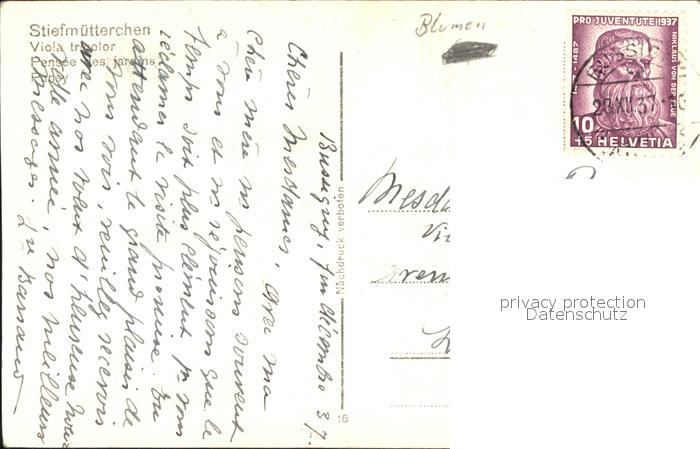 Stiefmütterchen
Viola tricolor
Pensée des jardins
Blumen
PRO JUVENTUTE 1937
NIKLAUS VON DER FLÜE
1417-1487
10
+5 HELVETIA
Bussigny, fin décembre 37.
Chères Mesdames, Avec ma
chère mère ns pensons souvent
à vous et ns réjouissons que le
temps soit plus clément pr vous
réclamer la visite promise. En
attendant le grand plaisir de
vous voir, veuillez recevoir
avec nos vœux d'heureuse nouv
elle année, nos meilleurs
messages.
Nachdruck verboten
16
privacy protection
Datenschutz